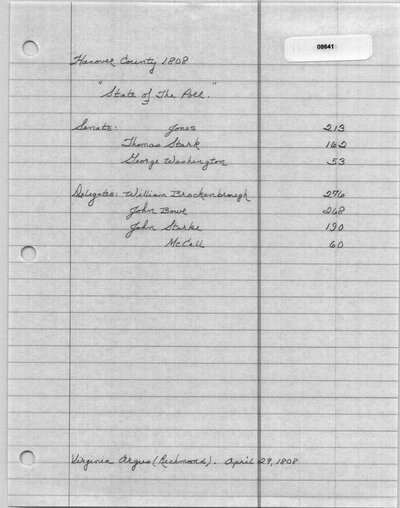 08641
Hanover County 1808
"State of The Poll."
Senate: Jones 213
Thomas Stark 162
George Washington 53
Delegates: William Brockenbrough 276
John Bowe 268
John Starke 190
McCall 60
Virginia Argus (Richmond). April 29, 1808